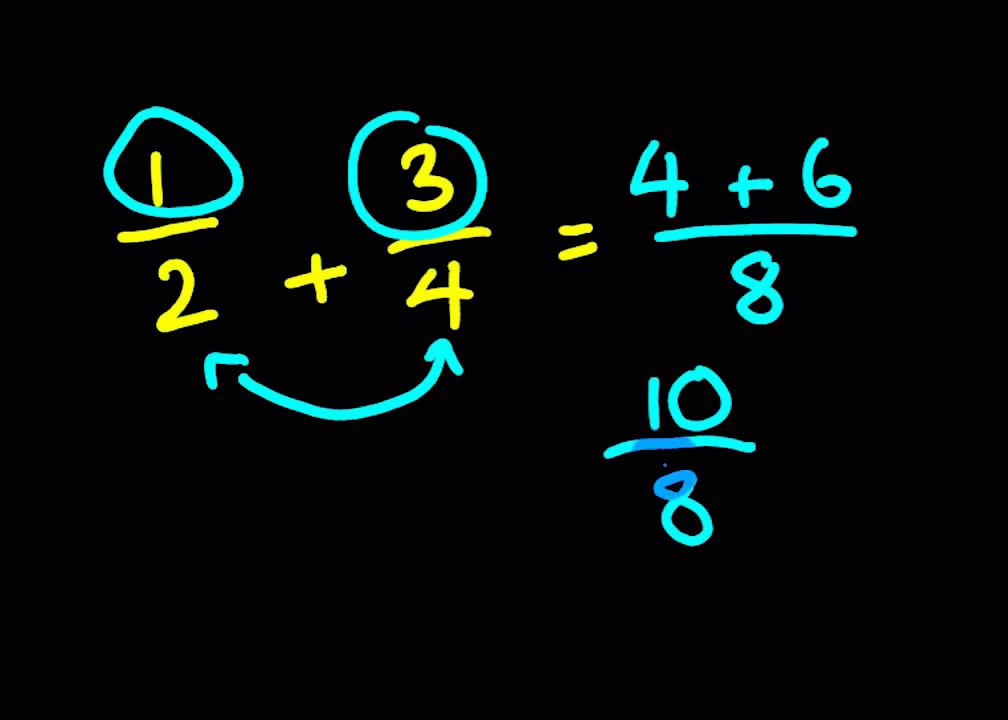 1/2 + 3/4 = (4 + 6)/8
10/8